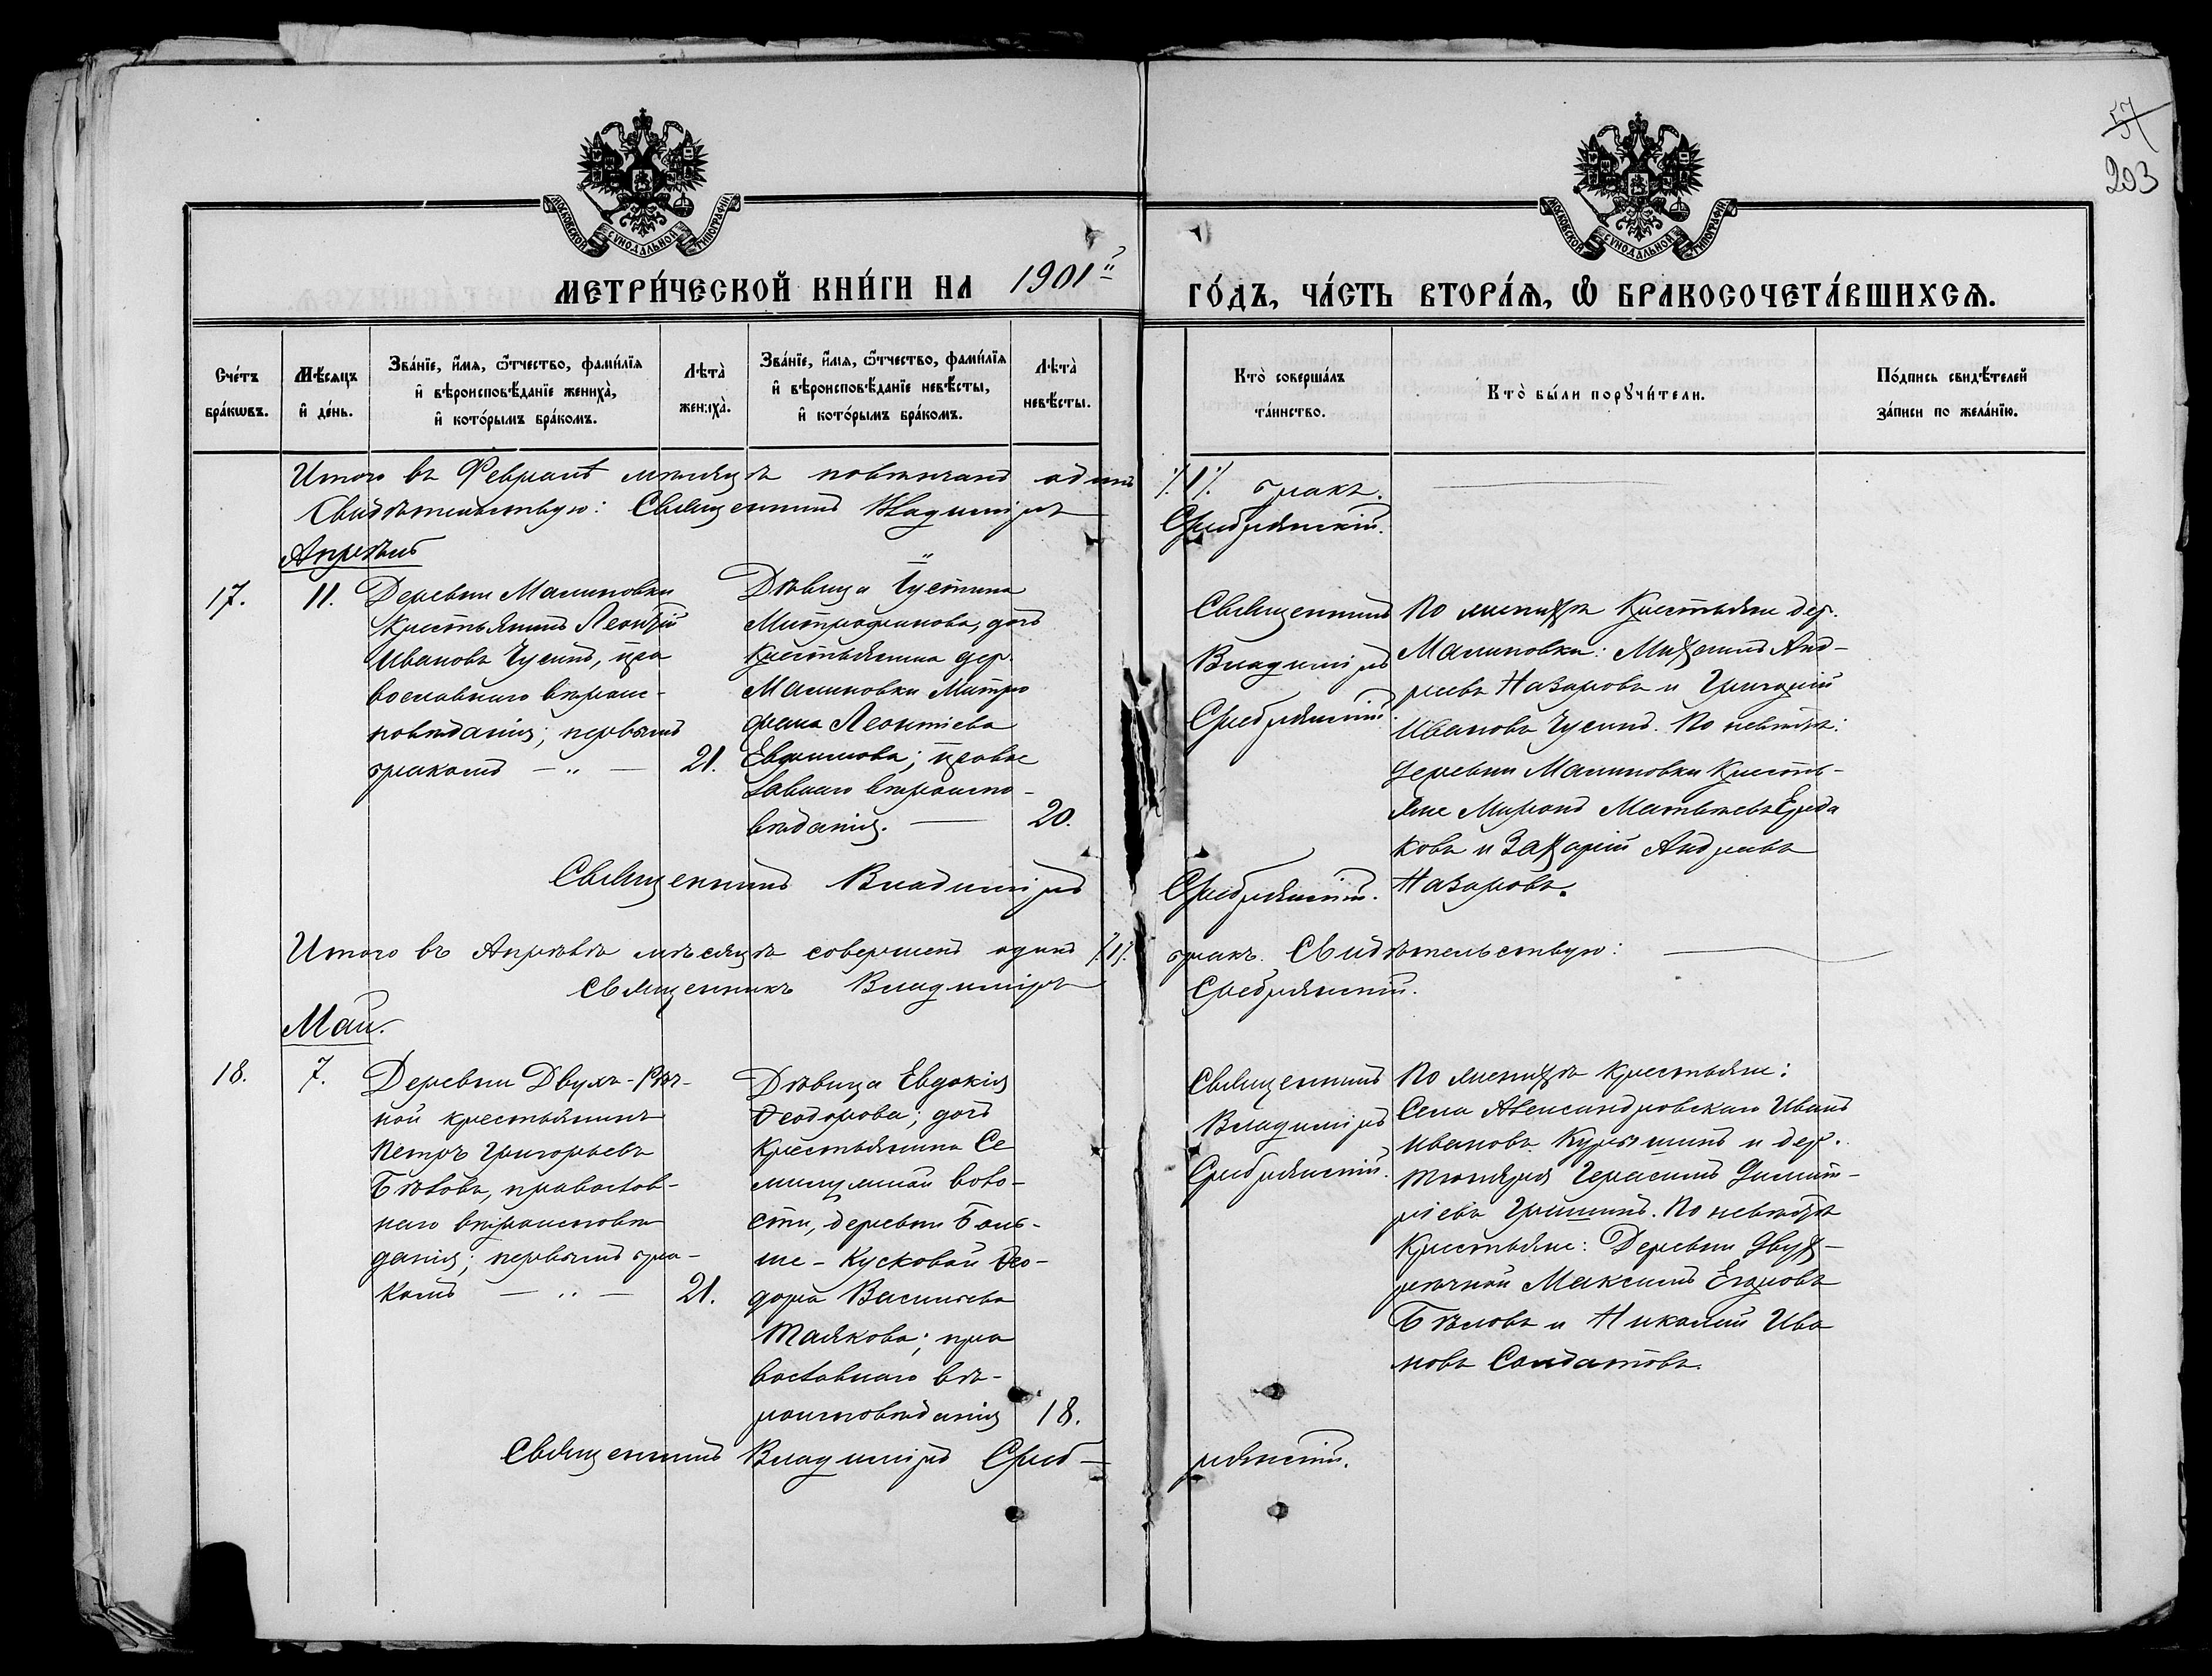 57
203
МОСКОВСКОЙ СѴНОДАЛЬНОЙ ТИПОГРАФІИ
МОСКОВСКОЙ СѴНОДАЛЬНОЙ ТИПОГРАФІИ
МЕТРИ́ЧЕСКОЙ КНИ́ГИ НА 1901й
ГО́ДЪ, ЧА́СТЬ ВТОРА́Ѧ, Ѽ БРАКОСОЧЕТА́ВШИХСѦ.
Сче́тъ бра́кѡвъ.
Мѣ́сяцъ и҆ де́нь.
Зва́нїе, и҆́мя, ѻ҆́тчество, фами́лїя
и҆ вѣроисповѣ́данїе жениха̀,
и҆ кото́рымъ бра́комъ.
Лѣта̀ жениха̀.
Зва́нїе, и҆́мя, ѻ҆́тчество, фами́лїя
и҆ вѣроисповѣ́данїе невѣ́сты,
и҆ кото́рымъ бра́комъ.
Лѣта̀ невѣ́сты.
Кто̀ соверша́лъ та́инство.
Кто̀ бы́ли порꙋчи́тели.
По́дпись свидѣ́телей за́писи по жела́нїю.
Итого въ Февралѣ мѣсяцѣ повѣнчанъ одинъ ./1/. бракъ.
Свидѣтельствую: Священникъ Владиміръ Сребрянскій.
Апрѣль
17.
11.
Деревни Малиновки
крестьянинъ Леонтій
Ивановъ Чусинъ, пра
вославнаго вѣроис-
повѣданія; первымъ
бракомъ — „ — 21.
Дѣвица Іустина
Митрофанова, дочь
крестьянина дер.
Малиновки Митро
фана Леонтіева
Евдокимова; право
славнаго вѣроиспо-
вѣданія. — 20.
Священникъ
Владиміръ
Сребрянскій.
По женихѣ Крестьяне дер.
Малиновки: Михаилъ Анд-
реевъ Назаровъ и Григорій
Ивановъ Чусинъ. По невѣстѣ:
Деревни Малиновки Кресть-
яне Миронъ Матвѣевъ
ковъ и Захарій Андреевъ
Назаровъ.
Священникъ Владиміръ Сребрянскій.
Итого въ Апрѣлѣ мѣсяцѣ совершенъ одинъ /1/. бракъ. Свидѣтельствую:
Священникъ Владиміръ Сребрянскій.
Май.
18.
7.
Деревни Двухъ-Рѣч-
ной крестьянинъ
Петръ Григорьевъ
Бѣловъ, православ-
наго вѣроисповѣ
данія; первымъ бра-
комъ — „ — 21.
Дѣвица Евдокія
Ѳеодорова; дочь
Крестьянина Се
милужной воло-
сти, деревни Боль-
ше-Кусковой Ѳео-
дора Васильева
Маякова; пра
вославнаго вѣ-
роисповѣданія 18.
Священникъ
Владиміръ
Сребрянскій.
По женихѣ Крестьяне:
Села Александровскаго Иванъ
Ивановъ Курьшинъ и дер.
Герасимъ Димит-
ріевъ Гришинъ. По невѣстѣ
Крестьяне: Деревни Двух-
рѣчной Максимъ Егоровъ
Бѣловъ и Николай Ива
новъ Солдатовъ.
Священникъ Владиміръ Среб-
рянскій.